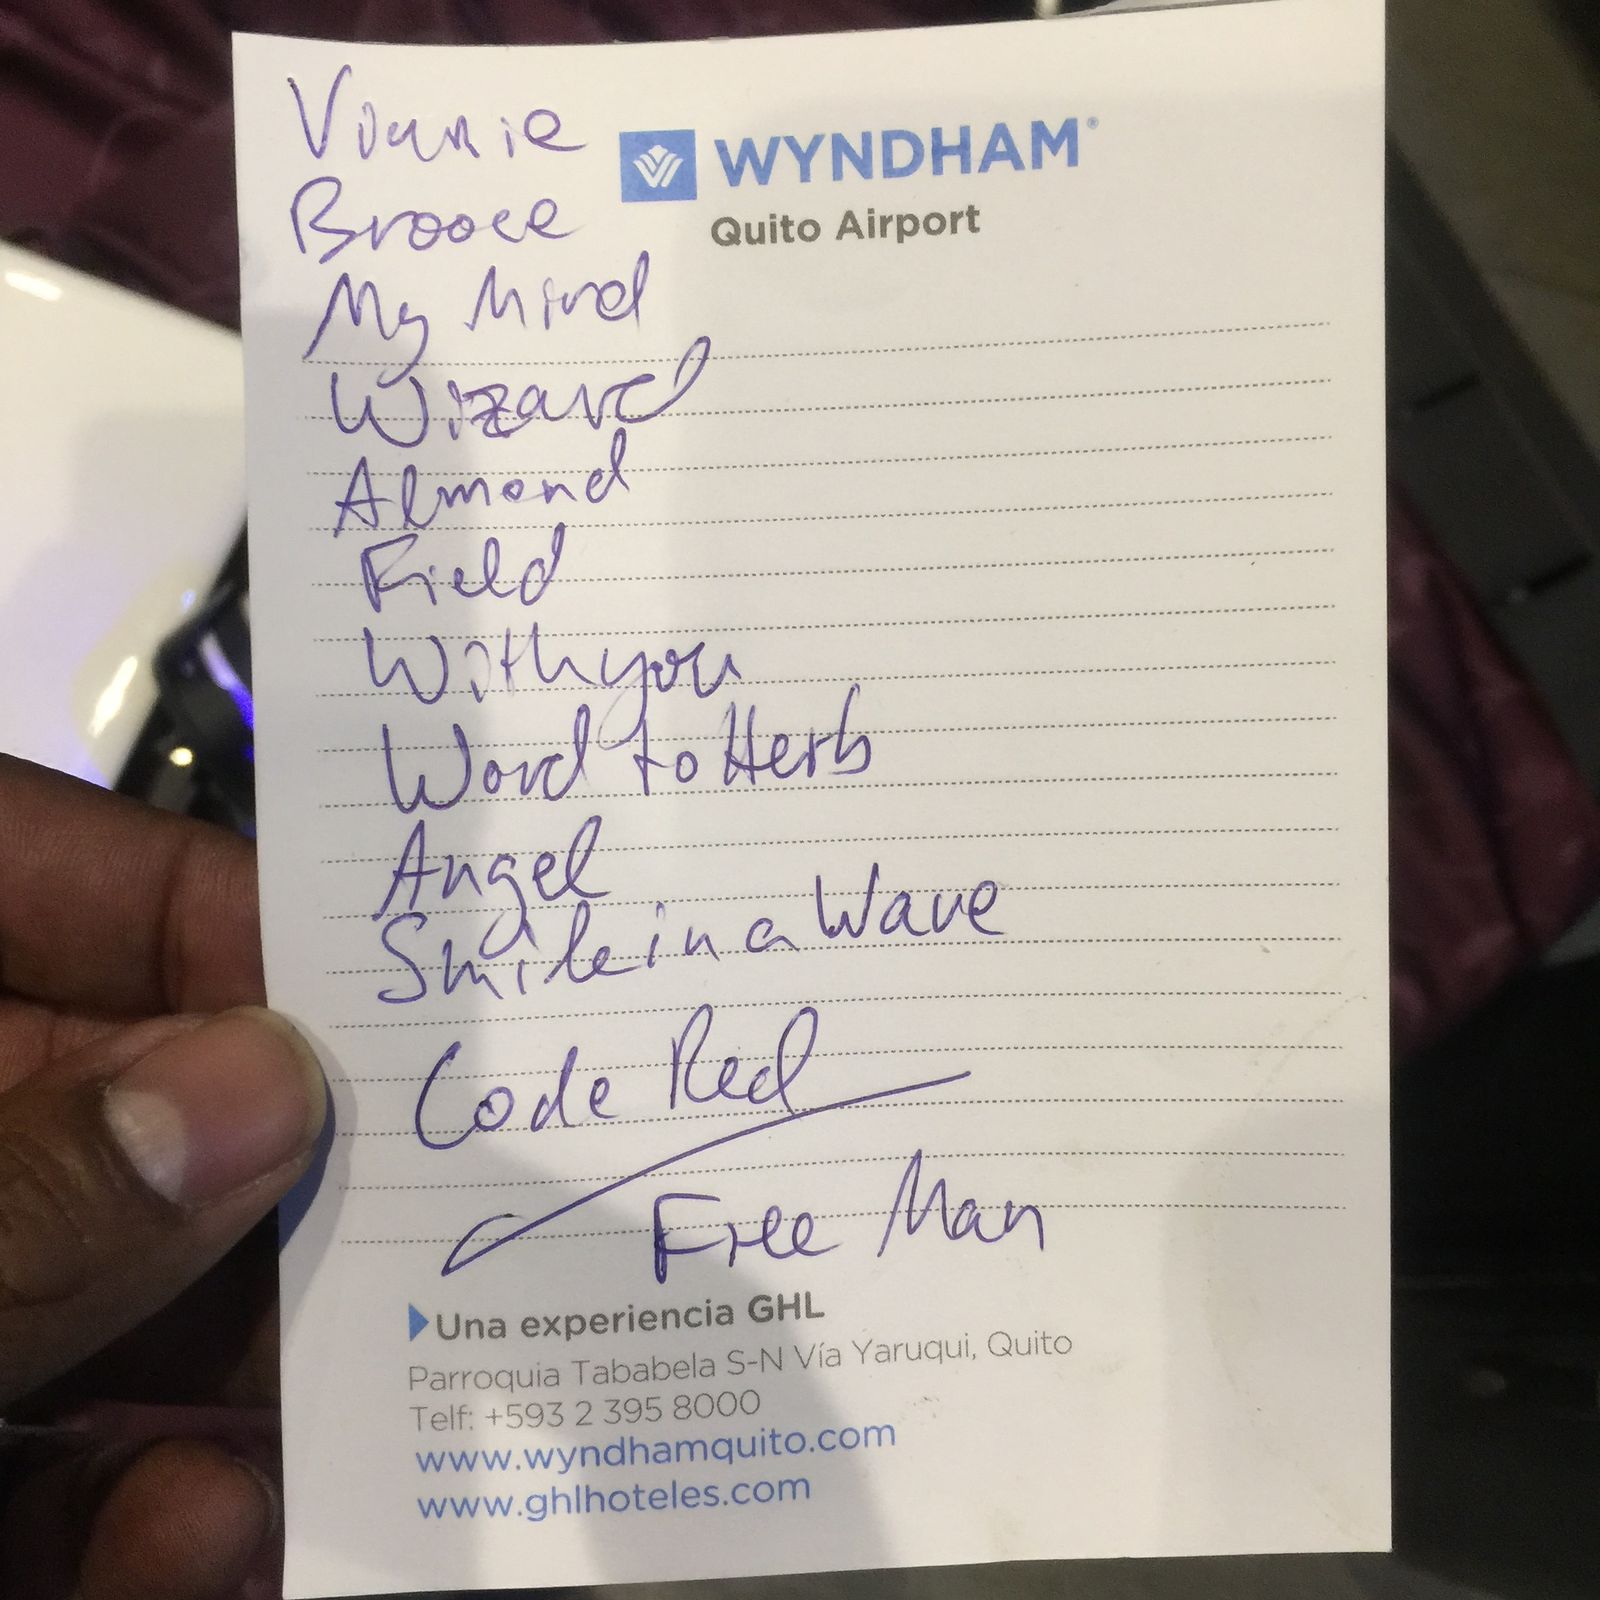 Vinnie
WYNDHAM®
Quito Airport
Brooce
My Mind
Wizard
Almond
Field
With you
Word to Herb
Angel
Smile in a Wave
Code Red
Free Man
Una experiencia GHL
Parroquia Tababela S-N Vía Yaruqui, Quito
Telf: +593 2 395 8000
www.wyndhamquito.com
www.ghlhoteles.com